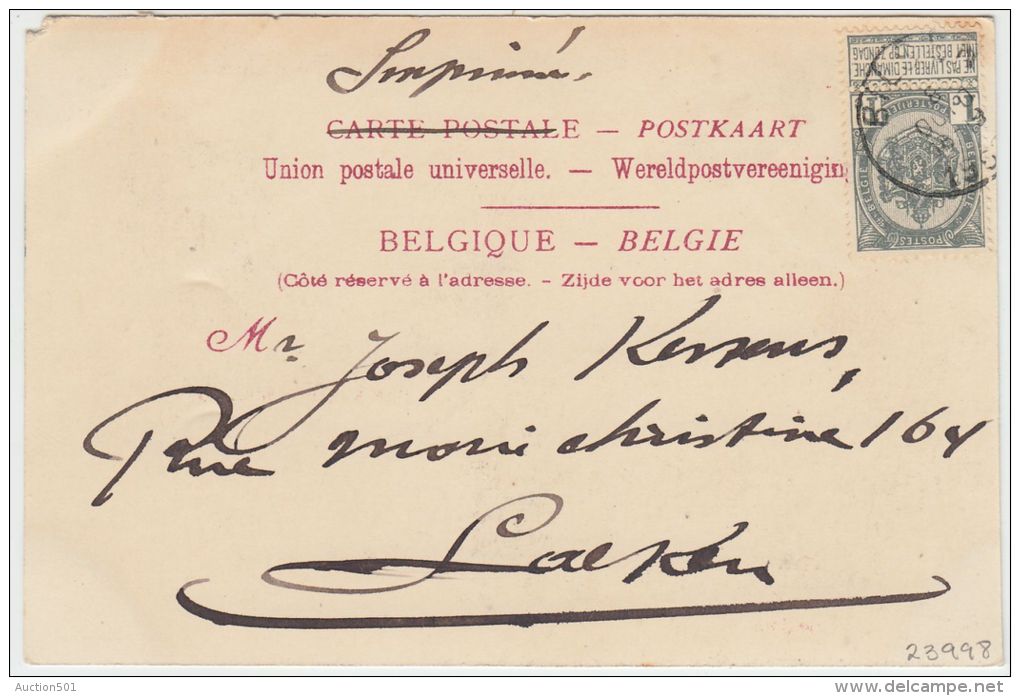 Imprimé.
CARTE POSTALE — POSTKAART
Union postale universelle. — Wereldpostvereeniging
BELGIQUE — BELGIE
(Côté réservé à l'adresse. - Zijde voor het adres alleen.)
Mr Joseph Kerssens,
Rue Marie Christine 164
Laeken
NE PAS LIVRER LE DIMANCHE
NIET BESTELLEN OP ZONDAG
1
BELGIE
POSTES
23998
Auction501
www.delcampe.net